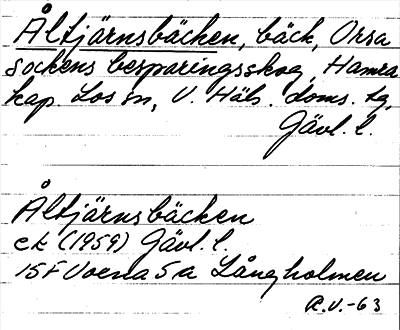 Åltjärnsbäcken, bäck, Orsa
sockens besparingsskog, Hamra
kap. Los sn, V. Häls. doms. tg,
Gävl. l.
Åltjärnsbäcken
ek (1959) Gävl. l.
15F Voxna 5a Långholmen
R.V.-63